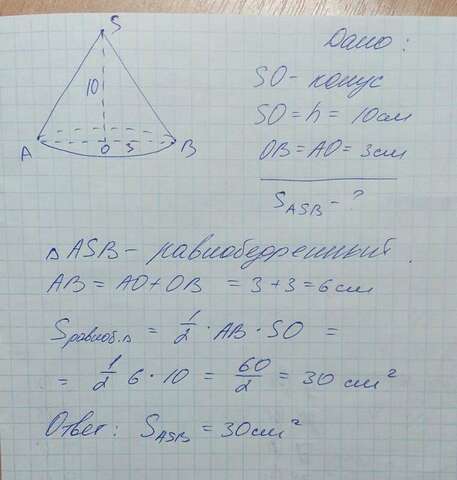 S
Дано:
10
SO - конус
SO = h = 10см
A
O
5
B
OB = AO = 3см
S ASB - ?
△ ASB - равнобедренный.
AB = AO + OB = 3 + 3 = 6 см
S равноб.△ = 1/2 · AB · SO =
= 1/2 6 · 10 = 60/2 = 30 см²
Ответ: S ASB = 30см²